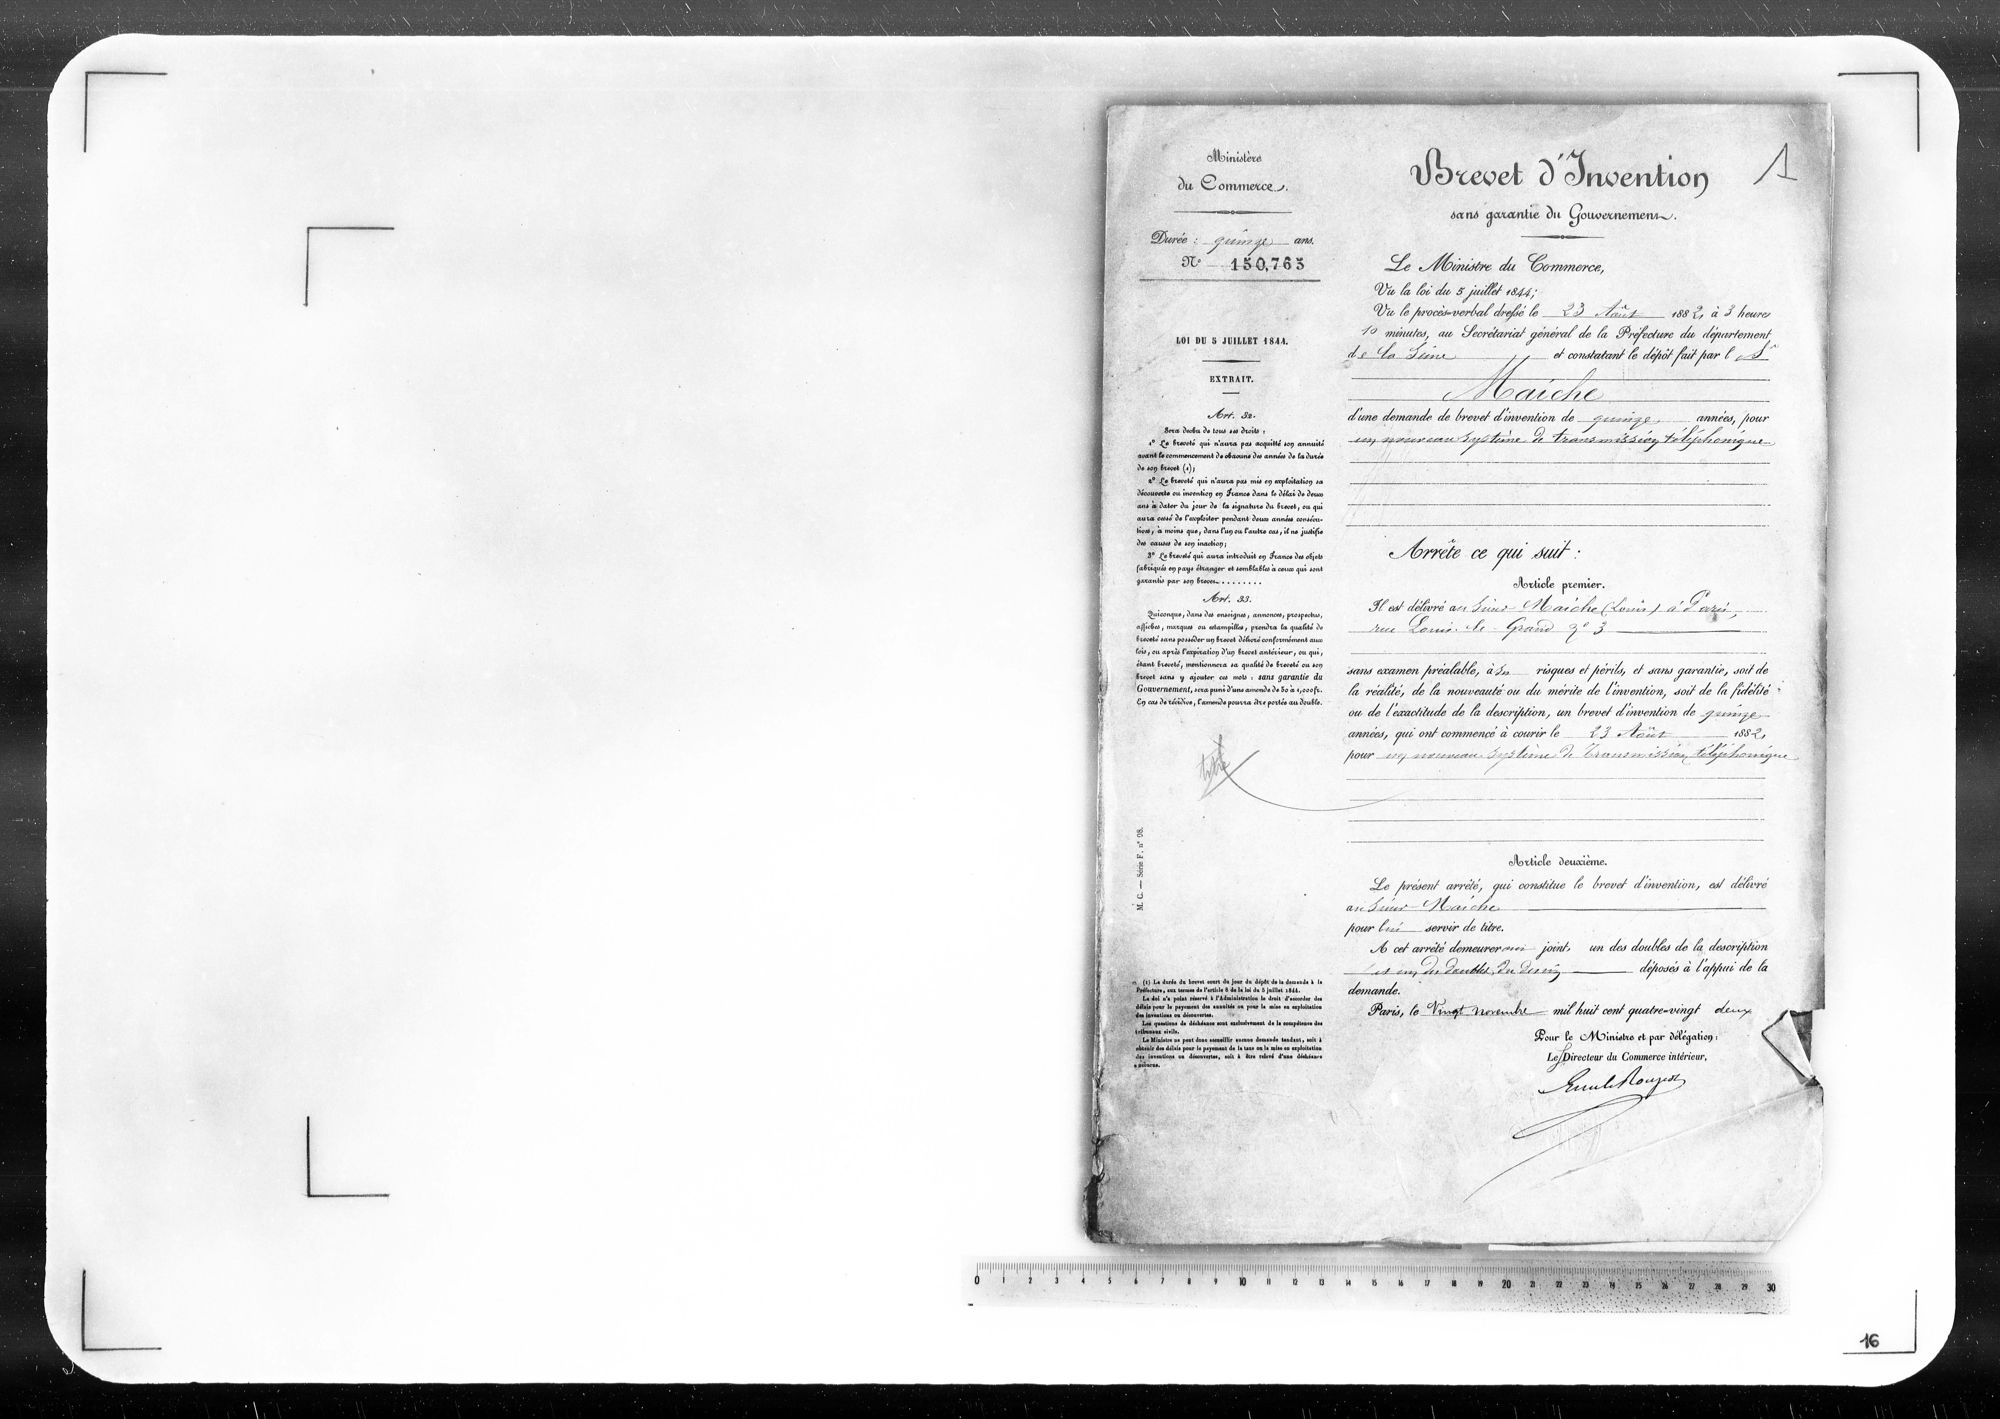 Ministère
du Commerce.
Durée : quinze ans.
N° 150,765
LOI DU 5 JUILLET 1844.
EXTRAIT.
Art. 32.
Sera déchu de tous ses droits :
1° Le breveté qui n'aura pas acquitté son annuité
avant le commencement de chacune des années de la durée
de son brevet (1);
2° Le breveté qui n'aura pas mis en exploitation sa
découverte ou invention en France dans le délai de deux
ans à dater du jour de la signature du brevet, ou qui
aura cessé de l'exploiter pendant deux années consécu-
tives, à moins que, dans l'un ou l'autre cas, il ne justifie
des causes de son inaction;
3° Le breveté qui aura introduit en France des objets
fabriqués en pays étranger et semblables à ceux qui sont
garantis par son brevet.........
Art. 33.
Quiconque, dans des enseignes, annonces, prospectus,
affiches, marques ou estampilles, prendra la qualité de
breveté sans posséder un brevet délivré conformément aux
lois, ou après l'expiration d'un brevet antérieur, ou qui,
étant breveté, mentionnera sa qualité de breveté ou son
brevet sans y ajouter ces mots : sans garantie du
Gouvernement, sera puni d'une amende de 50 à 1,000 fr.
En cas de récidive, l'amende pourra être portée au double.
titre
M. C. — Série F. n° 98.
(1) La durée du brevet court du jour du dépôt de la demande à la
Préfecture, aux termes de l'article 8 de la loi du 5 juillet 1844.
La loi n'a point réservé à l'Administration le droit d'accorder des
délais pour le payement des annuités ou pour la mise en exploitation
des inventions ou découvertes.
Les questions de déchéance sont exclusivement de la compétence des
tribunaux civils.
Le Ministre ne peut donc accueillir aucune demande tendant, soit à
obtenir des délais pour le payement de la taxe ou la mise en exploitation
des inventions ou découvertes, soit à être relevé d'une déchéance
encourue.
Brevet d'Invention
1
sans garantie du Gouvernement.
Le Ministre du Commerce,
Vu la loi du 5 juillet 1844;
Vu le procès-verbal dressé le 23 Août 1882, à 3 heures
10 minutes, au Secrétariat général de la Préfecture du département
de la Seine et constatant le dépôt fait par l S^r
Maiche
d'une demande de brevet d'invention de quinze années, pour
un nouveau système de transmission téléphonique
Arrête ce qui suit :
Article premier.
Il est délivré au Sieur Maiche (Louis) à Paris,
rue Louis-le-Grand n° 3
sans examen préalable, à ses risques et périls, et sans garantie, soit de
la réalité, de la nouveauté ou du mérite de l'invention, soit de la fidélité
ou de l'exactitude de la description, un brevet d'invention de quinze
années, qui ont commencé à courir le 23 Août 1882,
pour un nouveau système de transmission téléphonique
Article deuxième.
Le présent arrêté, qui constitue le brevet d'invention, est délivré
au Sieur Maiche
pour lui servir de titre.
A cet arrêté demeureront joints un des doubles de la description
et un des doubles du dessin déposés à l'appui de la
demande.
Paris, le Vingt novembre mil huit cent quatre-vingt deux
Pour le Ministre et par délégation :
Le Directeur du Commerce intérieur,
0 1 2 3 4 5 6 7 8 9 10 11 12 13 14 15 16 17 18 19 20 21 22 23 24 25 26 27 28 29 30
16